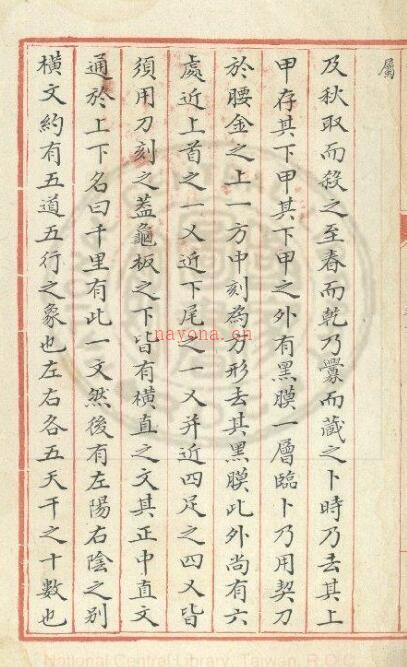 屬
及秋取而殺之至春而乾乃釁而藏之卜時乃去其上
甲存其下甲其下甲之外有黑膜一層臨卜乃用契刀
於腰金之上一方中刻為方形去其黑膜此外尚有六
處近上首之一又近下尾之一又并近四足之四又皆
須用刀刻之蓋龜板之下皆有橫直之文其正中直文
通於上下名曰千里有此一文然後有左陽右陰之別
橫文約有五道五行之象也左右各五天干之十數也
nayona.cn
National Central Library, Taiwan, R.O.C.